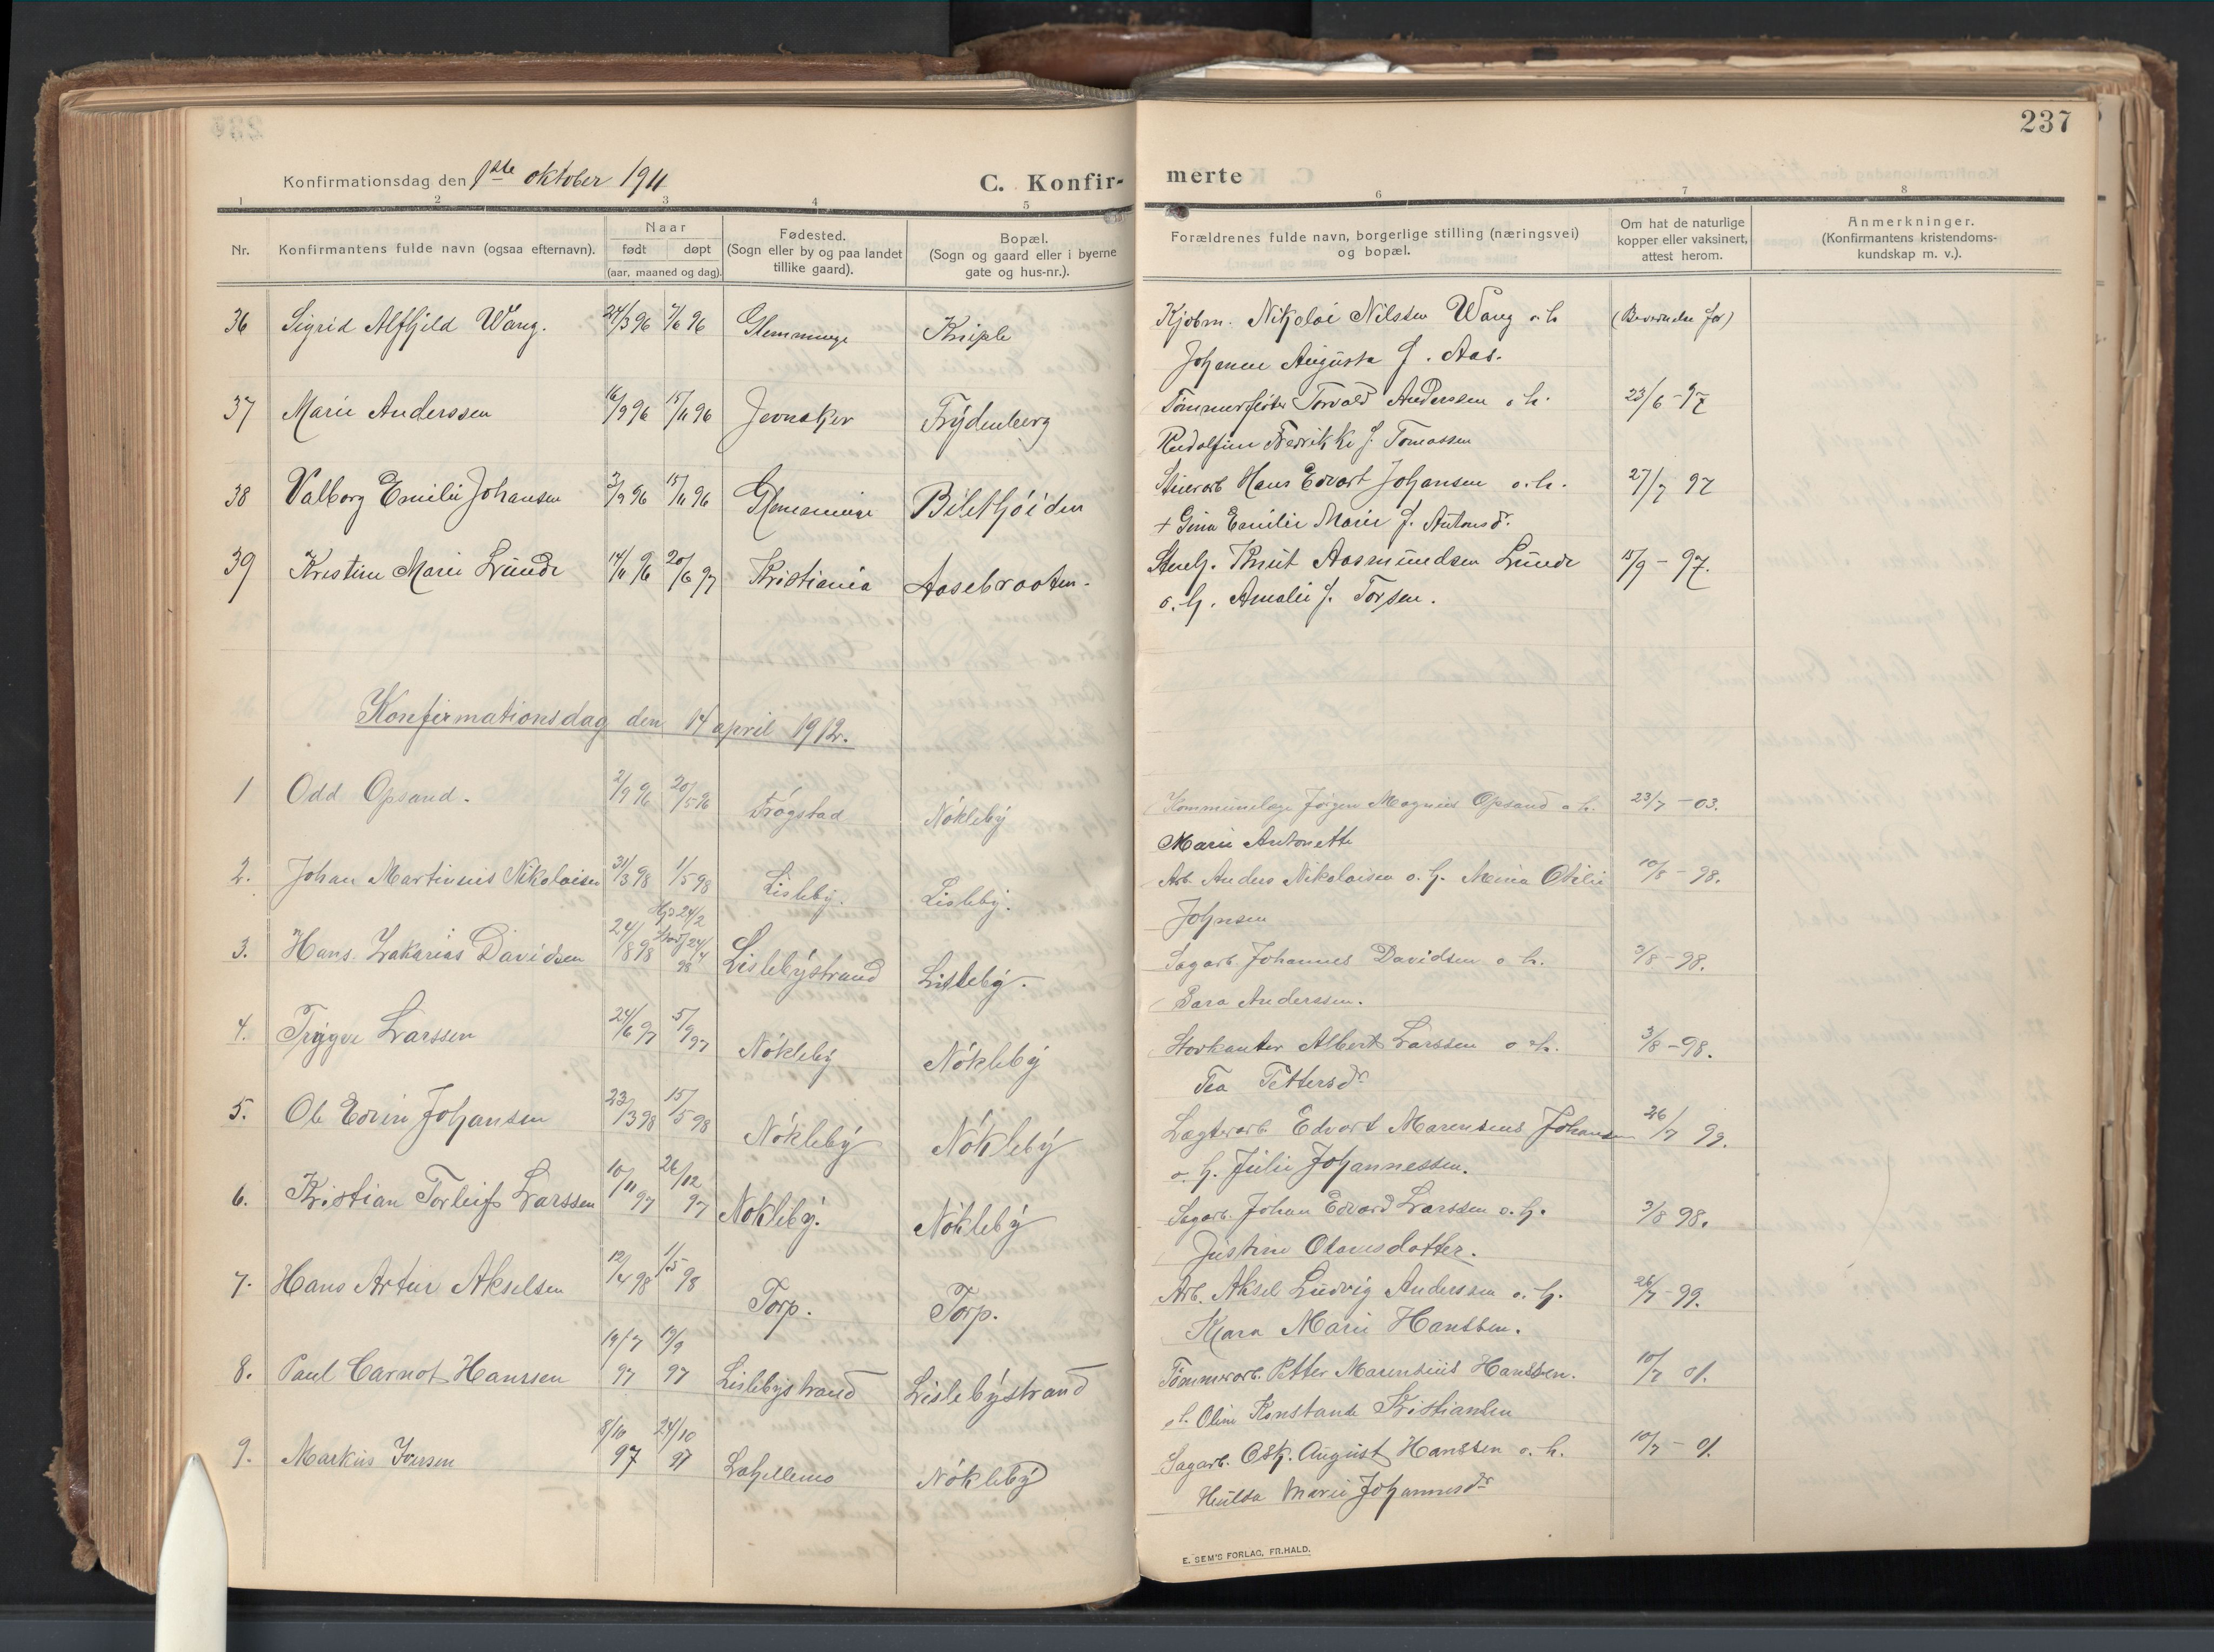 237
Konfirmationsdag den 1ste oktober 1911
C. Konfir-
merte
1 2 3 4 5 6 7 8
Nr.
Konfirmantens fulde navn (ogsaa efternavn).
Naar
født døpt
(aar, maaned og dag).
Fødested.
(Sogn eller by og paa landet
tillike gaard).
Bopæl.
(Sogn og gaard eller i byerne
gate og hus-nr.).
Forældrenes fulde navn, borgerlige stilling (næringsvei)
og bopæl.
Om hat de naturlige
kopper eller vaksinert,
attest herom.
Anmerkninger.
(Konfirmantens kristendoms-
kundskap m. v.).
36 Sigrid Alfhild Wang. 24/3 96 7/6 96 Glemminge Kniple Kjøbm. Nikolai Nilssen Wang o. h.
Johanne Augusta f. Aas.
37 Marie Anderssen 16/9 96 15/11 96 Jevnaker Frydenberg Tømmerfløter Torvald Anderssen o. h. 23/6 - 97
Rudolfine Fredrikke f. Tomassen
38 Valborg Emilie Johansen 3/9 96 15/11 96 Glemminge Bilethöiden Hans Edvart Johansen o. h. 27/7 97
+ Gina Emilie Marie f. Antonsdr.
39 Kristine Marie Lunde 14/11 96 20/6 97 Kristiania Aasebraaten. Stenh. Knut Aasmundsen Lunde 15/9 - 97.
o. h. Amalie f. Torsen.
Konfirmationsdag den 14 april 1912.
1 Odd Opsand. 2/9 96 20/5 96 Trøgstad Nökleby Kommunelæge Jørgen Magnus Opsand o. h. 23/7 - 03.
Marie Antonette
2. Johan Martinius Nikolaisen 31/3 98 1/5 98 Lisleby. Lisleby. Arb. Anders Nikolaisen o. h. Mina Otilie 10/8 - 98.
Johnsen
3. Hans Zakarias Davidsen 24/8 98 Hjd 24/2 24/4 98 Lislebystrand Lisleby. Sagarb. Johannes Davidsen o. h. 3/8 - 98.
Sara Anderssen.
4. Trygve Larssen 24/6 97 5/9 97 Nökleby Nökleby Hovkanter Albert Larssen o. h. 3/8 - 98.
Tea Pettersdr.
5. Ole Edvin Johansen 23/3 98 15/5 98 Nökleby Nökleby Lægterarb. Edvart Marensius Johansen 26/7 99.
o. h. Julie Johannessen.
6. Kristian Torleif Larssen 10/11 97 26/12 97 Nökleby. Nökleby Sagarb. Johan Edvard Larssen o. h. 3/8 98.
Justine Olausdatter.
7. Hans Artur Akselsen 12/4 98 1/5 98 Torp. Torp. Arb. Aksel Ludvig Anderssen o. h. 26/7 - 99.
Klara Marie Hanssen.
8. Paul Carnot Hanssen 19/7 97 19/9 97 Lislebystrand Lislebystrand Tømmerarb. Petter Marensius Hanssen. 10/7 01.
o. h. Oline Konstanse Kristiansen
9. Markus Iversen 8/10 97 24/10 97 Lahellemo Nökleby Sagarb. Osk. August Hanssen o. h. 10/7 - 01.
Hulda Marie Johannesdr
E. SEM'S FORLAG, FR.HALD.